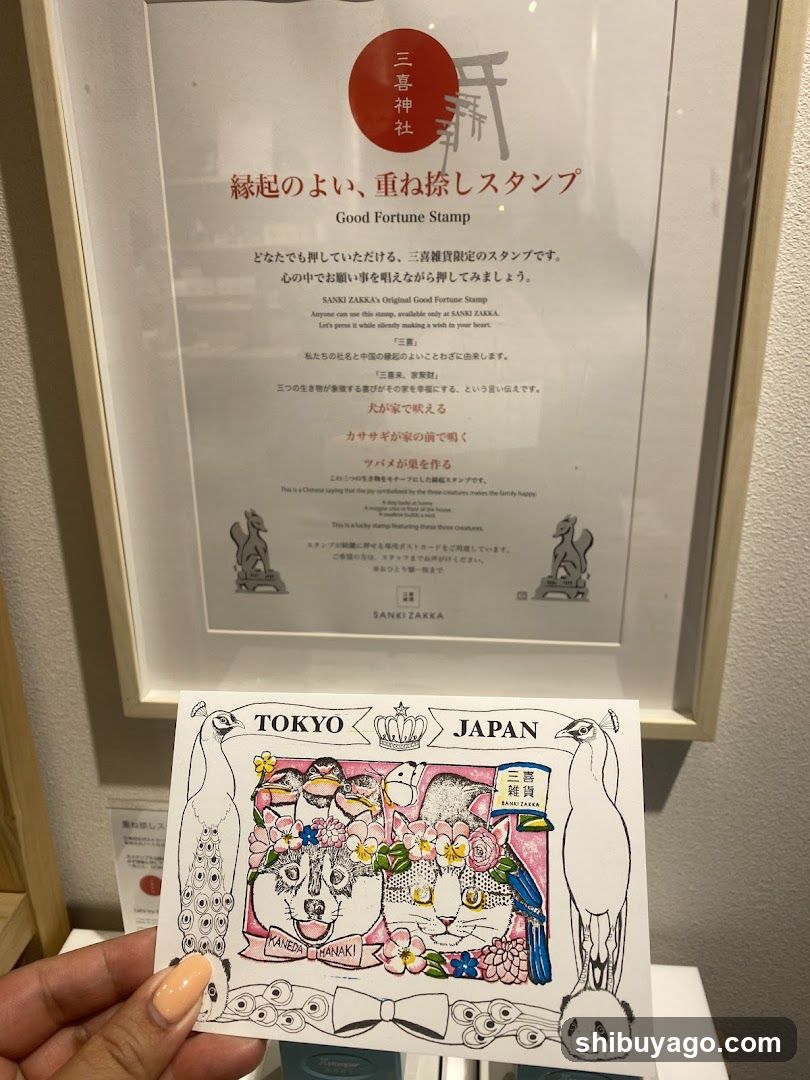 三喜神社
縁起のよい、重ね捺しスタンプ
Good Fortune Stamp
どなたでも押していただける、三喜雑貨限定のスタンプです。
心の中でお願い事を唱えながら押してみましょう。
SANKI ZAKKA's Original Good Fortune Stamp
Anyone can use this stamp, available only at SANKI ZAKKA.
Let's press it while silently making a wish in your heart.
「三喜」
私たちの社名と中国の縁起のよいことわざに由来します。
「三喜来、家聚財」
三つの生き物が象徴する喜びがその家を幸福にする、という言い伝えです。
犬が家で吠える
カササギが家の前で鳴く
ツバメが巣を作る
この三つの生き物をモチーフにした縁起スタンプです。
This is a Chinese saying that the joy symbolized by the three creatures makes the family happy.
A dog barks at home
A magpie cries in front of the house
A swallow builds a nest
This is a lucky stamp featuring these three creatures.
スタンプが綺麗に押せる専用ポストカードをご用意しています。
ご希望の方は、スタッフまでお声がけください。
※おひとり様一枚まで
三喜
雑貨
SANKI ZAKKA
TOKYO JAPAN
三喜
雑貨
SANKI ZAKKA
KANEDA HANAKI
重ね捺しス
shibuyago.com